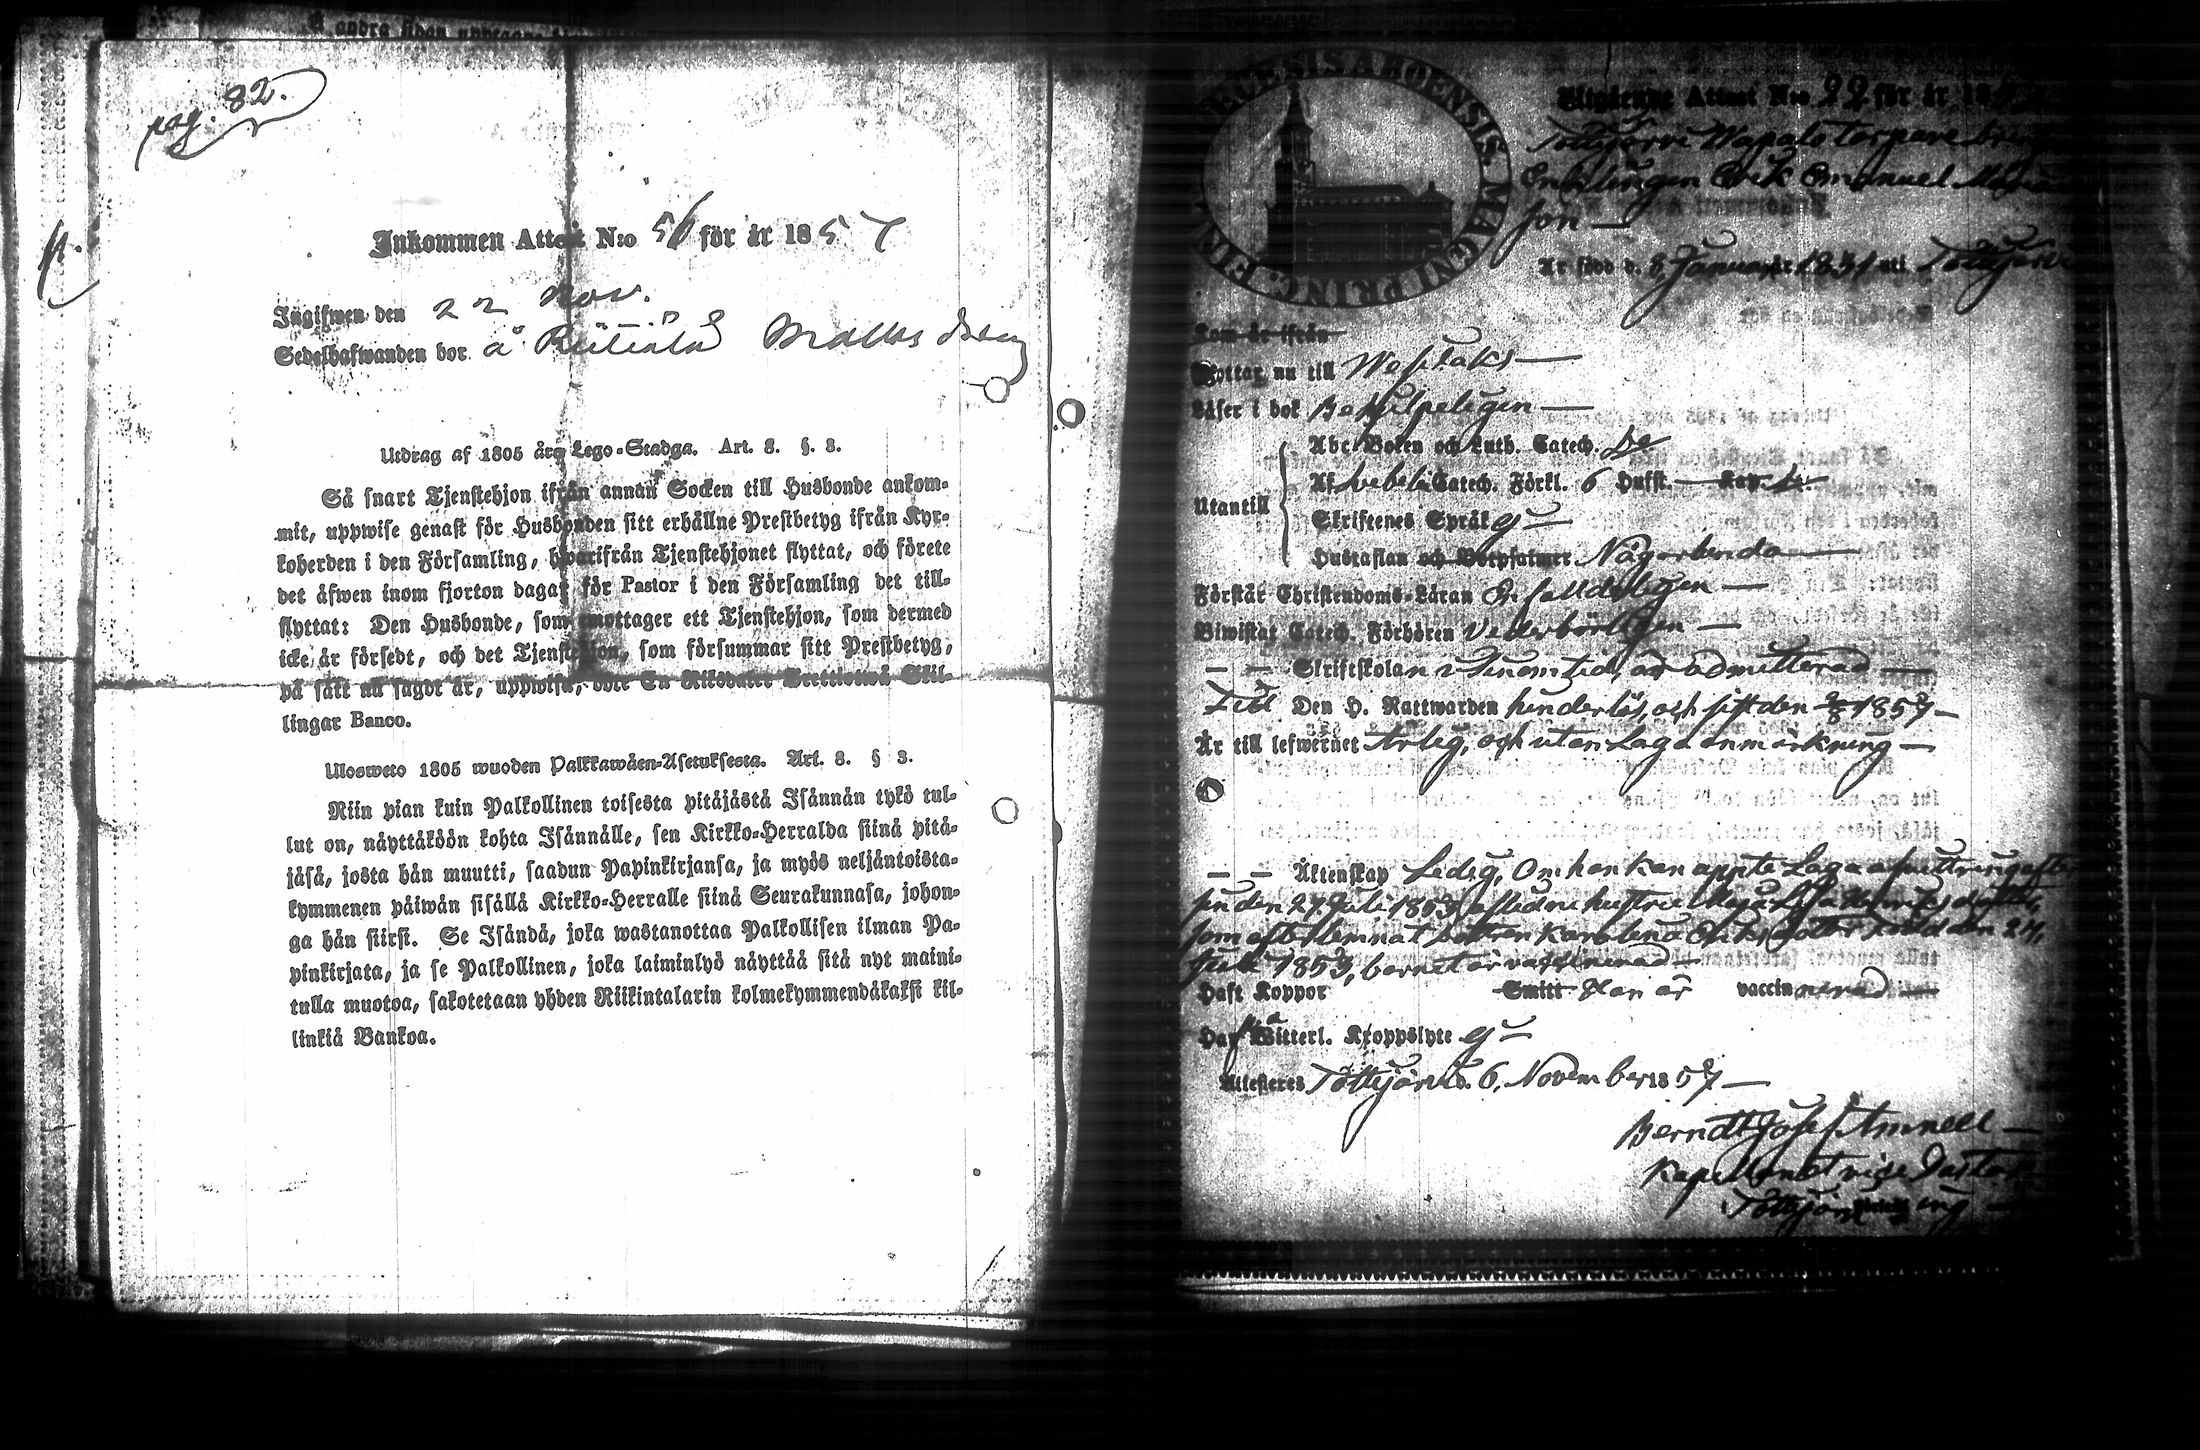 pag. 82.
Inkommen Attest N:o 56 för år 1857
Ingifwen den 22 Nov.
Sedelhafwanden bor å
Utdrag af 1805 års Lego-Stadga. Art. 8. §. 3.
Så snart Tjenstehjon ifrån annan Socken till Husbonde ankom-
mit, uppwise genast för Husbonden sitt erhållne Prestbetyg ifrån Kyr-
koherden i den Församling, hwarifrån Tjenstehjonet flyttat, och förete
det äfwen inom fjorton dagar för Pastor i den Församling det till-
flyttat: Den Husbonde, som emottager ett Tjenstehjon, som dermed
icke är försedt, och det Tjenstehjon, som försummar sitt Prestbetyg,
på sätt nu sagdt är, uppwisa, böte En Riksdaler Trettiotwå Skil-
lingar Banco.
Ulosweto 1805 wuoden Palkkawäen-Asetuksesta. Art. 8. § 3.
Niin pian kuin Palkollinen toisesta pitäjästä Isännän tykö tul-
lut on, näyttäköön kohta Isännälle, sen Kirkko-Herralda siinä pitä-
jäsä, josta hän muutti, saadun Papinkirjansa, ja myös neljäntoista-
kymmenen päiwän sisällä Kirkko-Herralle siinä Seurakunnasa, johon-
ga hän siirsi. Se Isändä, joka wastanottaa Palkollisen ilman Pa-
pinkirjata, ja se Palkollinen, joka laiminlyö näyttää sitä nyt maini-
tulla muotoa, sakotetaan yhden Riikintalarin kolmekymmendäkaksi kil-
linkiä Bankoa.
DIOECESIS ABOENSIS. MAGNI PRINC. FINL.
Utgående Attest N:o 22 för år 18
Tottijärvi Torpare
Enklingen Erik Emanuel
son
Är född d. 8 Januarii 1831 uti Tottijärvi
Som är ifrån
Flyttar nu till Wesilaks
Läser i bok Behjelpeligen
Utantill
Abc-Boken och Luth. Catech. De
Af Svebelii Catech. Förkl. 6 Hufst. Kap.
Skriftenes Språk ej
Hustaflan och Botpsalmer Någorlunda
Förstår Christendoms-Läran Enfalldeligen
Biwistat Catech. Förhören Vederbörligen
Skriftskolan i sinom tid, är admitterad
Till Den H. Nattwarden hinderlös, och sist den 2/8 1857
Är till lefwernet Ärlig, och utan Laga anmärkning
Äktenskap Ledig, Om han kan uppte Laga afvittring efter
sin den 27 Juli 1853 aflidne hustru Maja Lisa Henriksdotter,
som efterlemnat Dottren Karolina Eriksdotter född den 27,
Juli 1853, barnet är vaccinerad
Haft Koppor Smitt Han är vaccinnerad
Har Witterl. Kroppslyte ej
Attesteras Tottijärvi d. 6, November 1857
Berndt Josef Amnell
Kapellan et vice Pastor